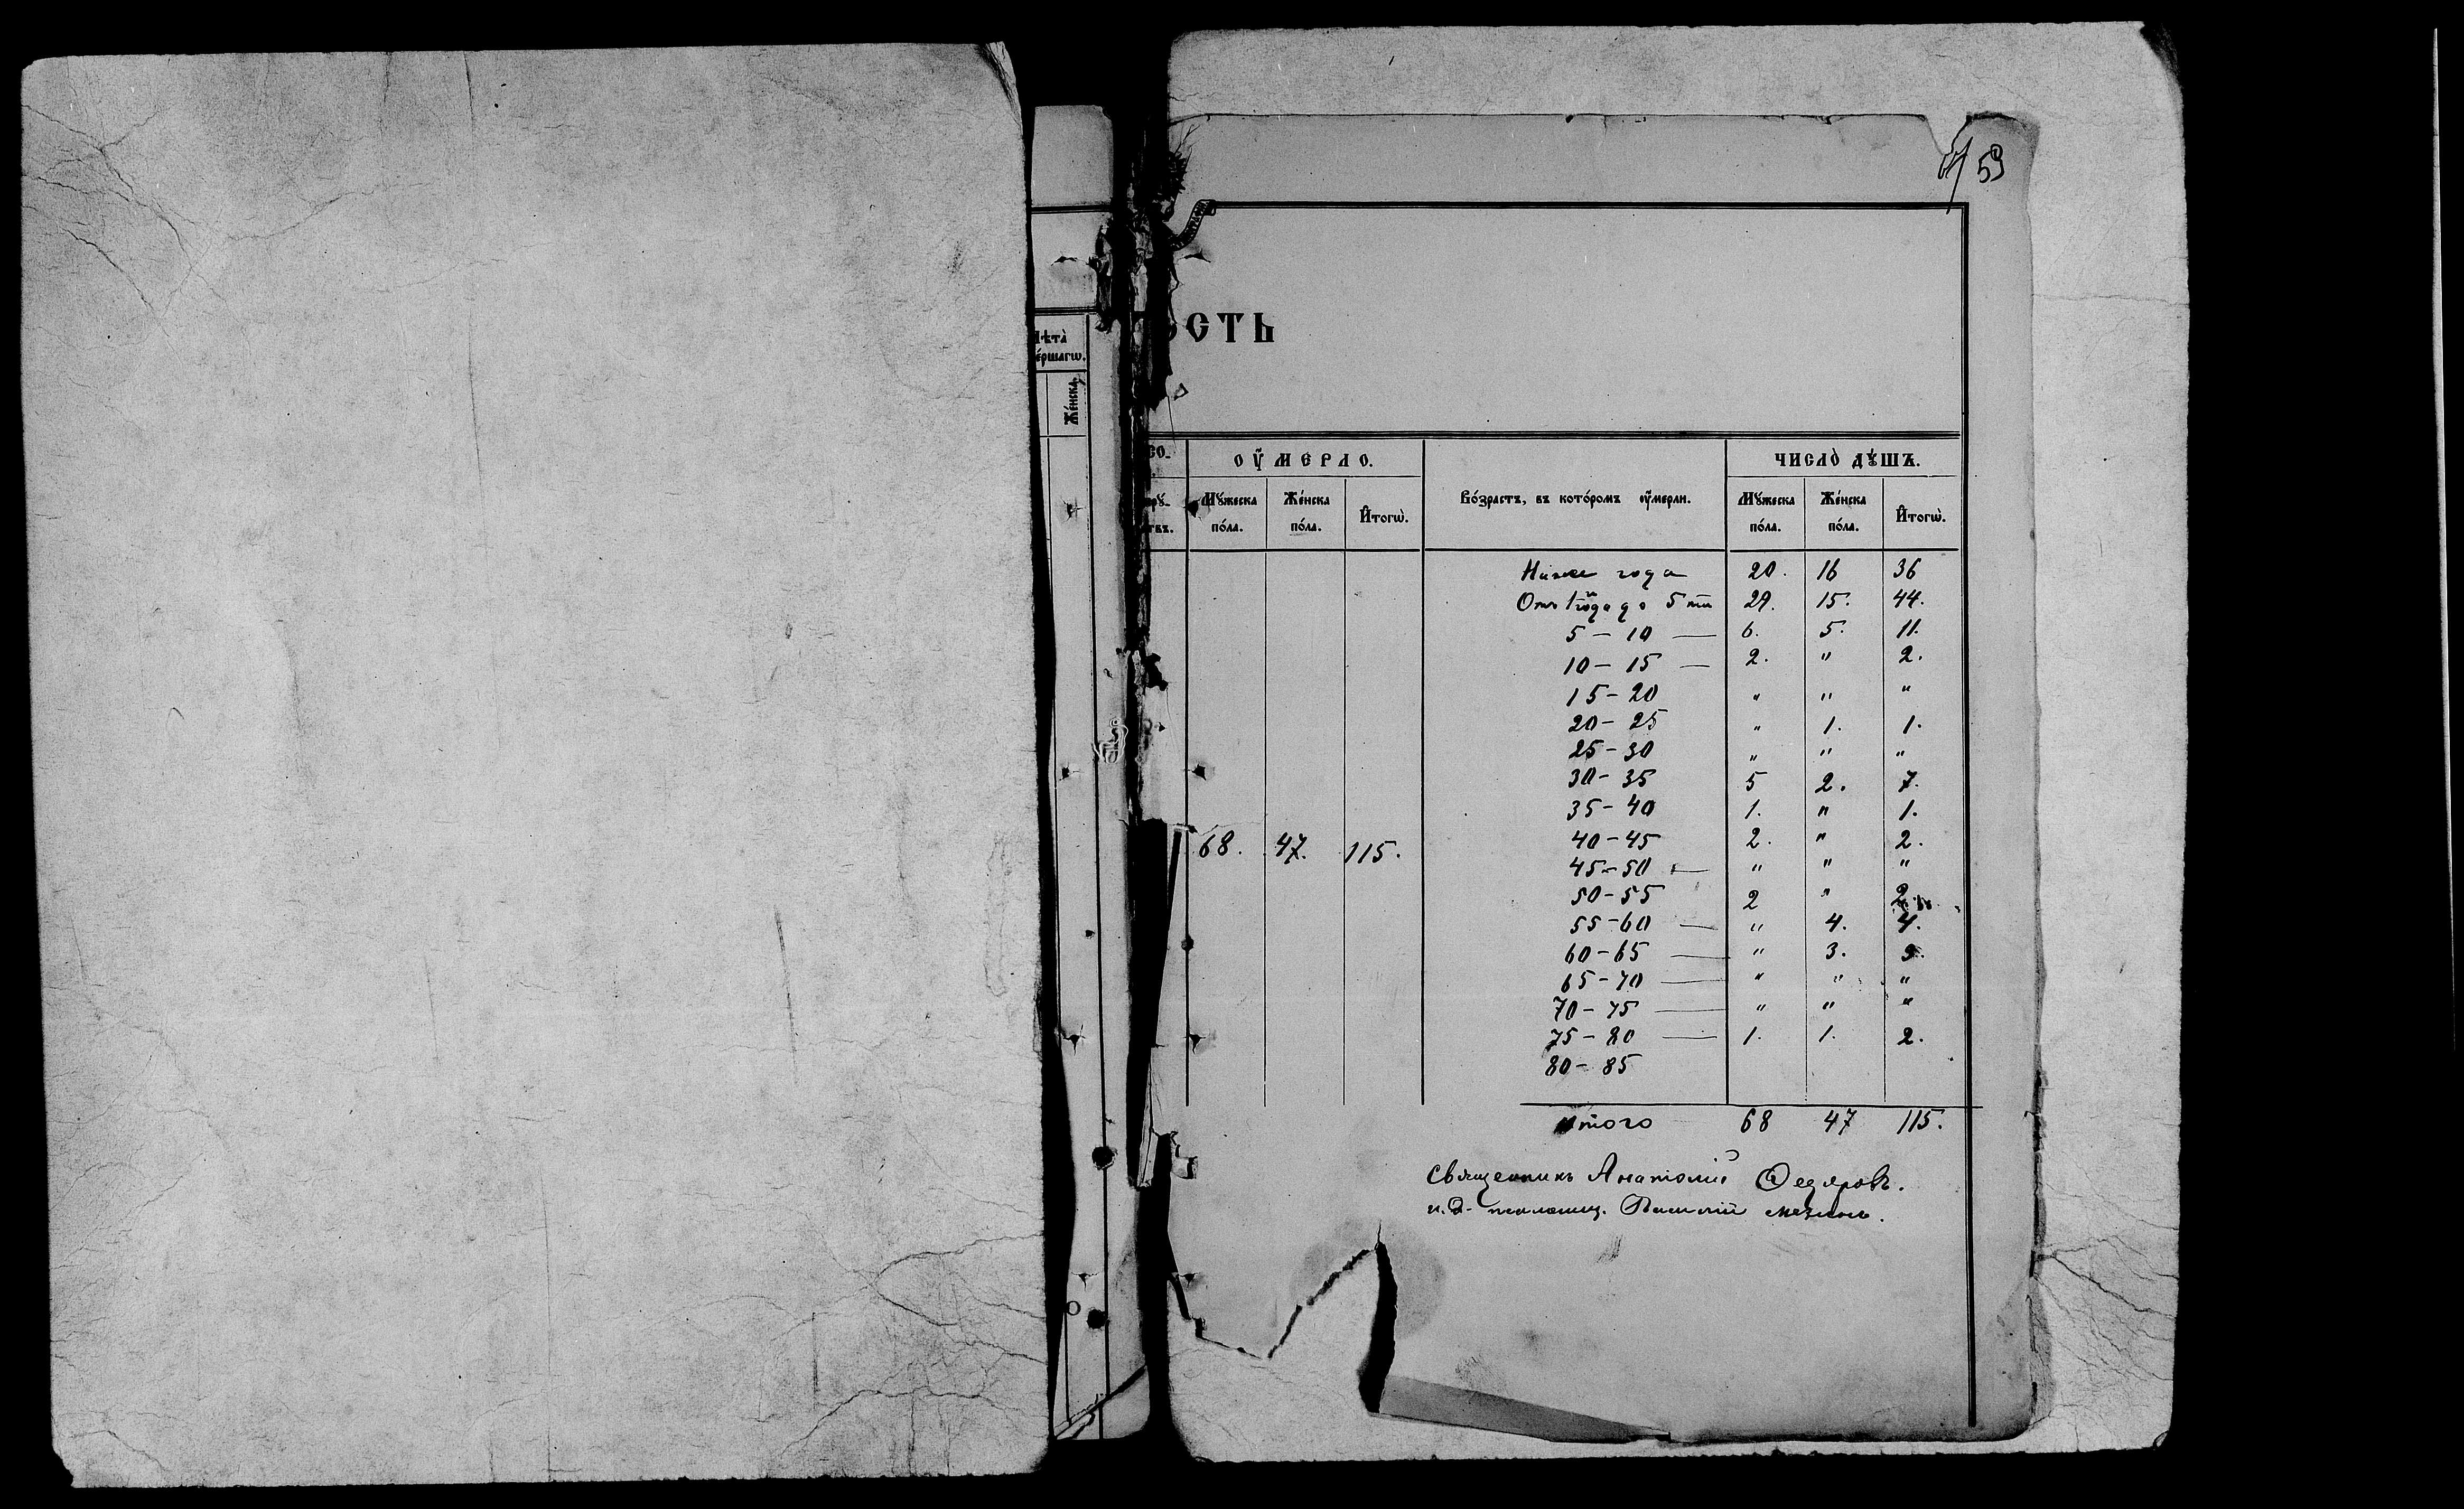 59
ость
Лѣта
Женска
Оумерло.
Мужеска пола.
Женска пола.
Итогѡ.
Возрастъ, въ которомъ оумерли.
Число душъ.
Мужеска пола.
Женска пола.
Итогѡ.
68. 47. 115.
Ниже года 20. 16 36
Отъ 1 года до 5ти 29. 15. 44.
5 – 10 — 6. 5. 11.
10 – 15 — 2. " 2.
15 – 20 " " "
20 – 25 " 1. 1.
25 – 30 " " "
30 – 35 5 2. 7.
35 – 40 1. " 1.
40 – 45 2. " 2.
45 – 50 — " " "
50 – 55 2 " 2
55 – 60 — " 4. 4.
60 – 65 — " 3. 3.
65 – 70 — " " "
70 – 75 — " " "
75 – 80 — 1. 1. 2.
80 – 85
итого 68 47 115.
Священникъ Анатолій Ѳедоровъ.
и.д. псаломщ. Василій